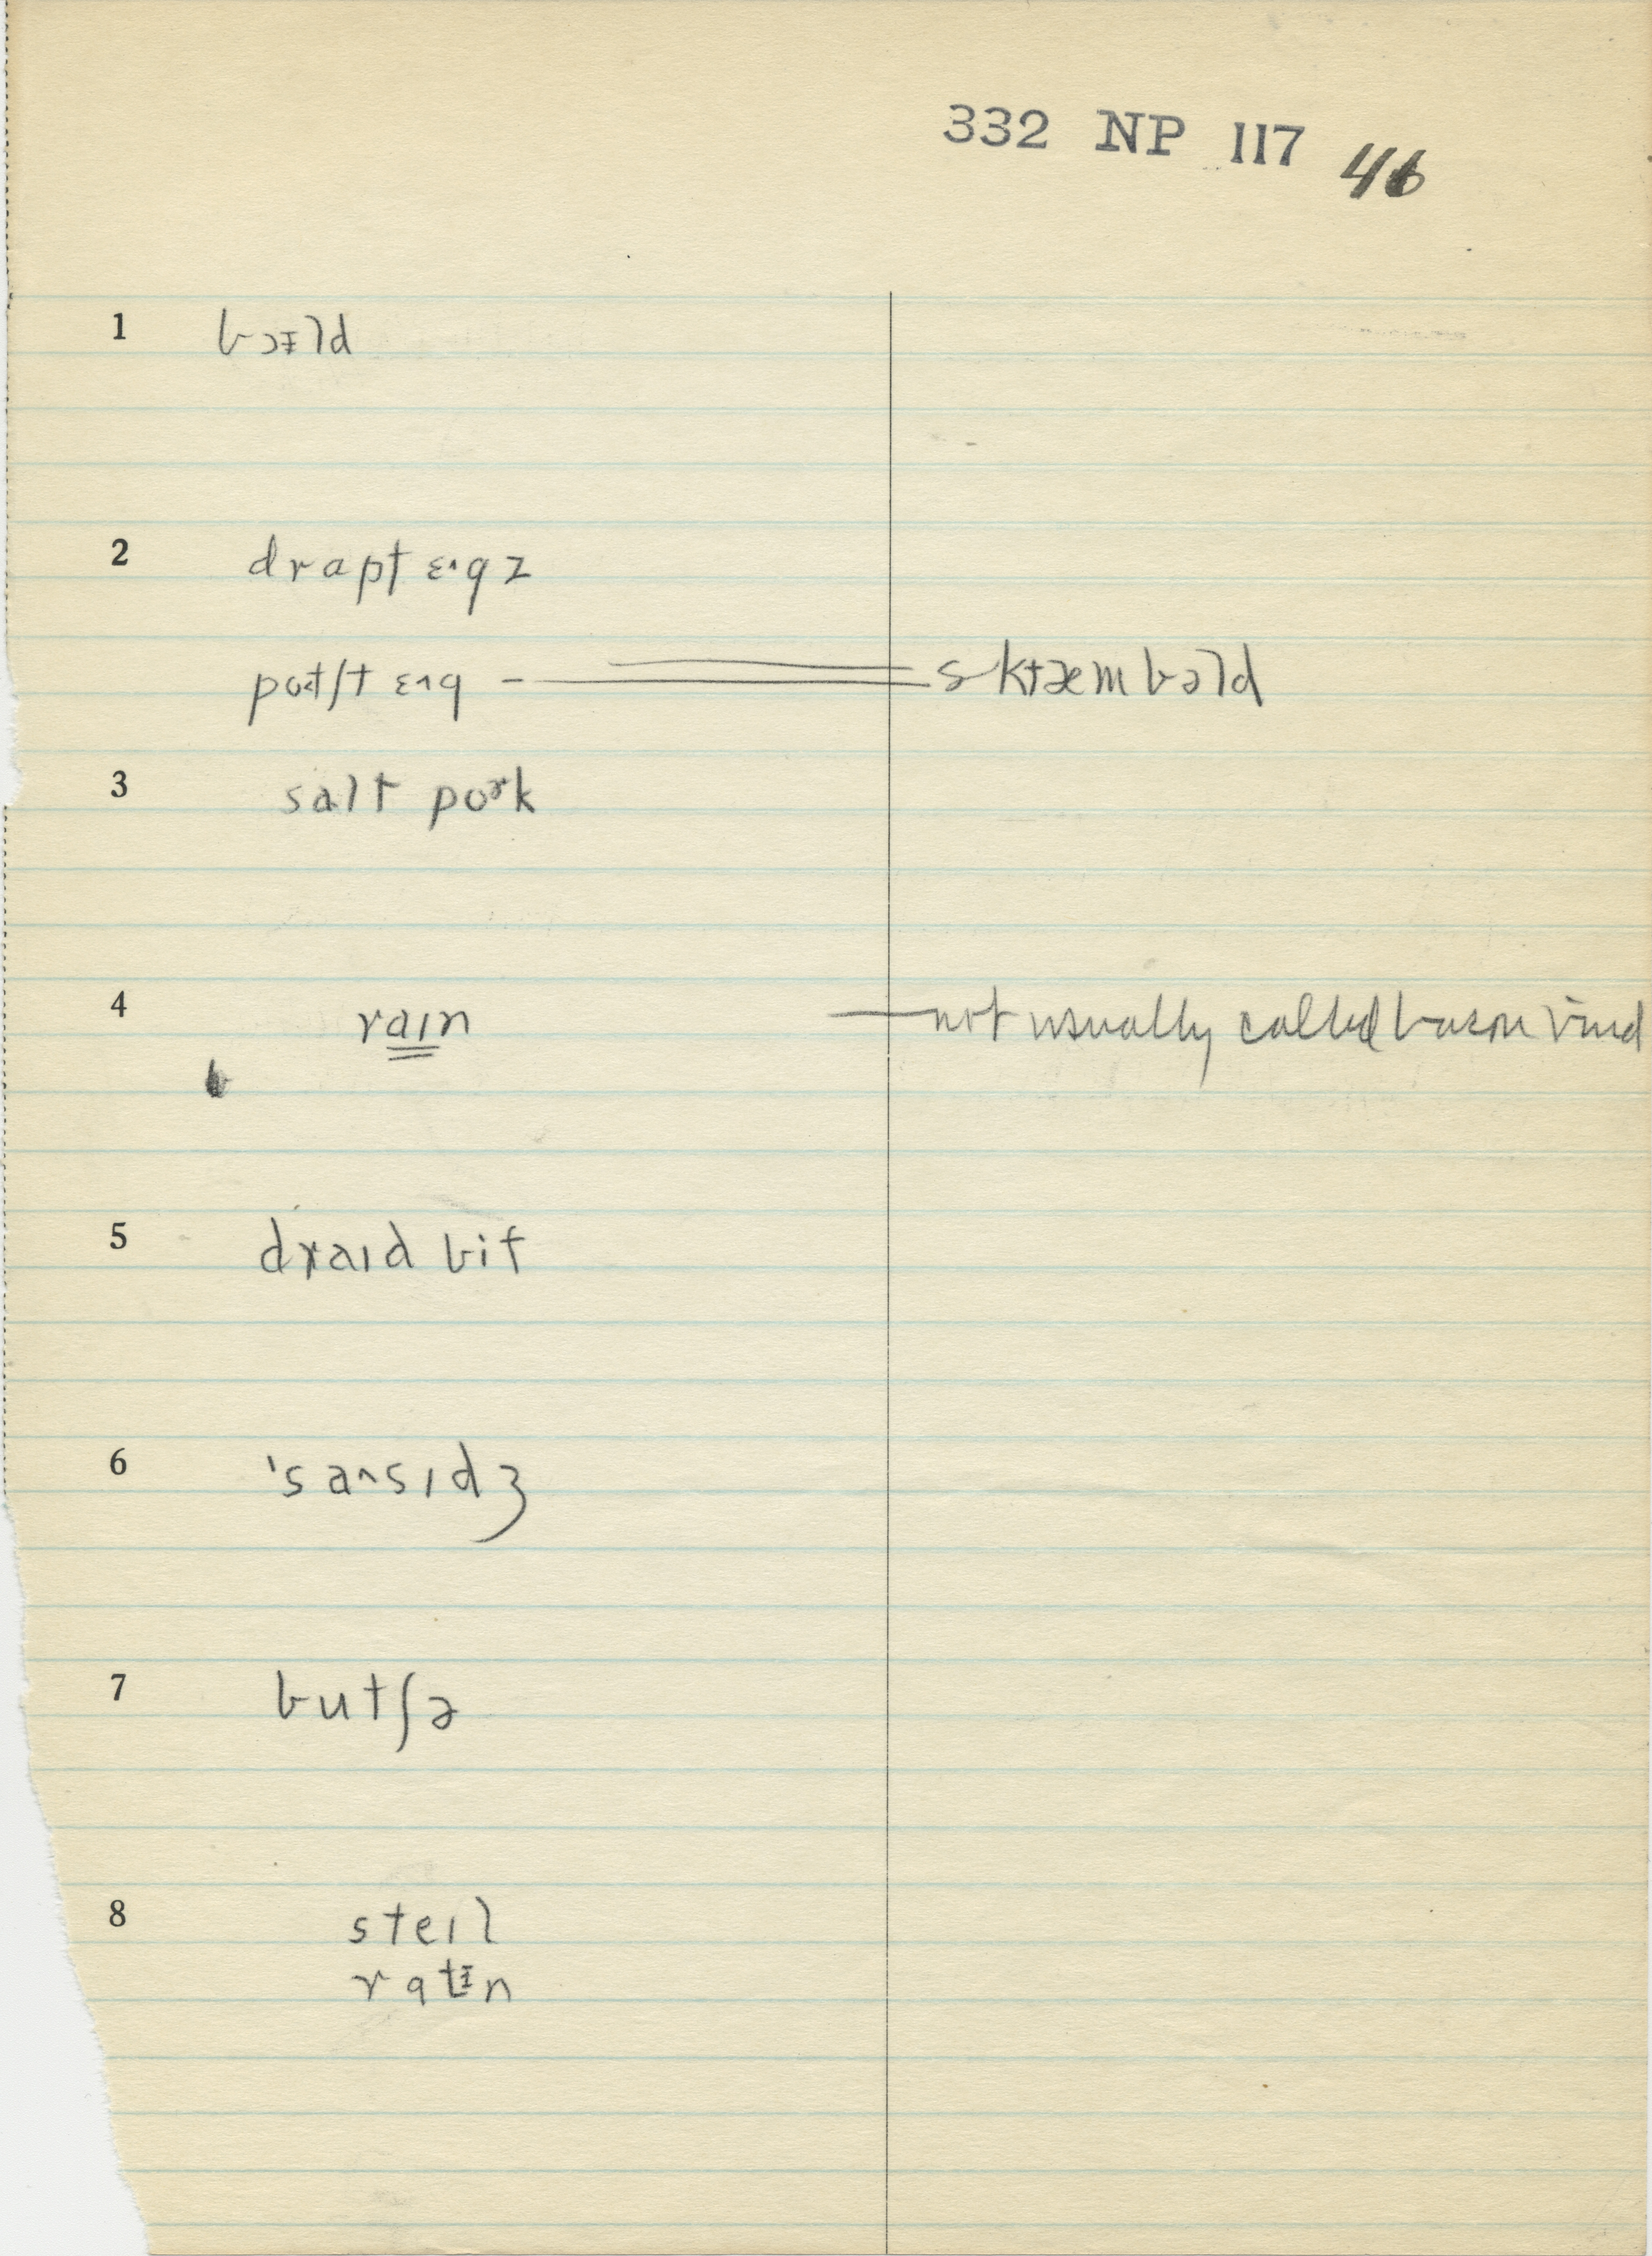 332 NP 117 46
1 bɔᵻld
2 drapt ɛ˄gz
poatʃt ɛ˄g – sktæmbəld
3 salt poɚk
4 raɪn — not usually called bacon rind
5 draɪd bif
6 ˈsa˄sɪdʒ
7 butʃə
8 steɪl
ratᵻn